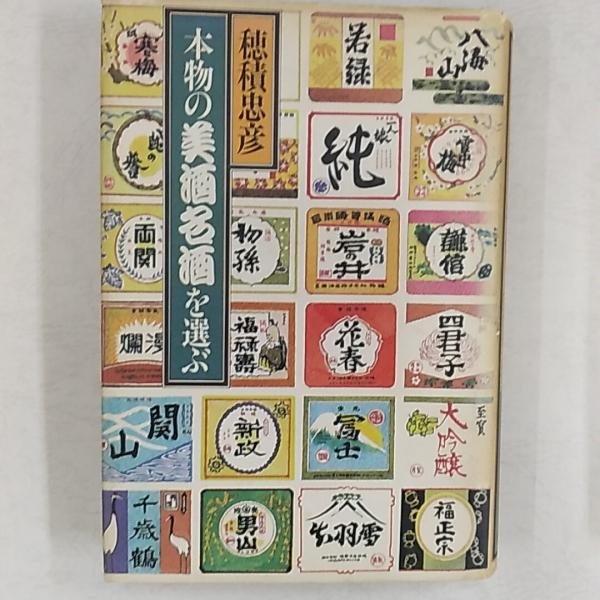 穂積忠彦
本物の美酒名酒を選ぶ
寒梅
若緑
八海山
誉
一人娘
純
雪中梅
両関
初孫
岩の井
謙信
爛漫
福禄寿
花春
四君子
関山
新政
冨士
至寶
大吟醸
千歳鶴
男山
出羽雪
福正宗